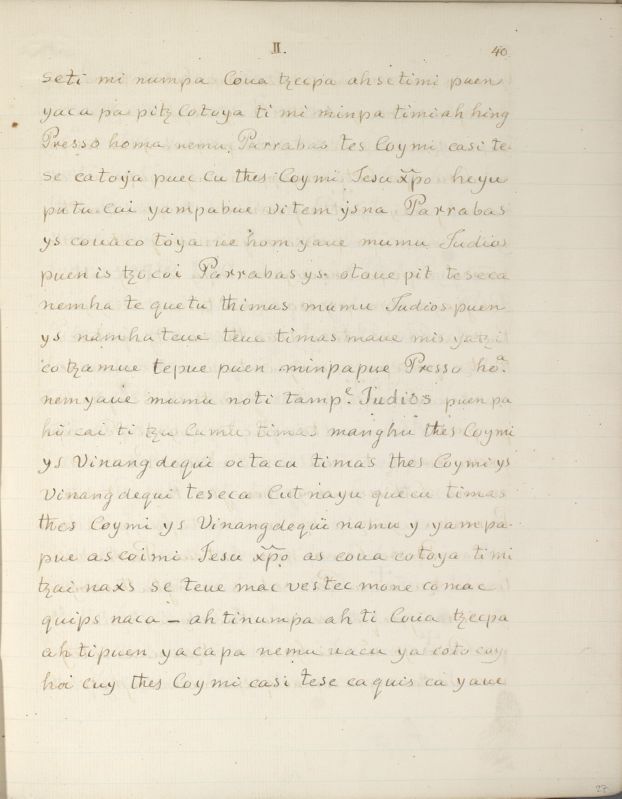 II.
40
seti mi numpa Coua tzecpa ahsetimi puen
yaca pa pitz Cotoya ti mi minpa timiah hing
Presso homa nemu Parrabas tes Coymi casi te
se catoya puec cu thes Coymi Jesu xp̃o heyu
putu cui yampabue vitem ysna Parrabas
ys couaco toya ue hom yaue mumu Judios
puen is tzocoi Parrabas ys otaue pit teseca
nemha te quetu thimas mumu Judios puen
ys namhateue teue timas maue mis yatzi
cotzamue tepue puen minpapue Presso hoᵃ.
nemyaue mumu noti tampᵉ. Judios puen pa
hi cai ti tzu cumu timas manghu thes Coymi
ys Vinangdequi octacu timas thes Coymi ys
Vinangdequi teseca Cutnayu quecu timas
thes Coymi ys Vinangdequi namu y yampa-
pue ascoimi Jesu xp̃o as coua cotoya timi
tzai naxs se teue mac vestec mone comac
quips naca – ahtinumpa ahti Coua tzecpa
ahtipuen yacapa nemu uacu ya coto coy
hoi cuy thes Coymi casi tese caquis ca yaue
27